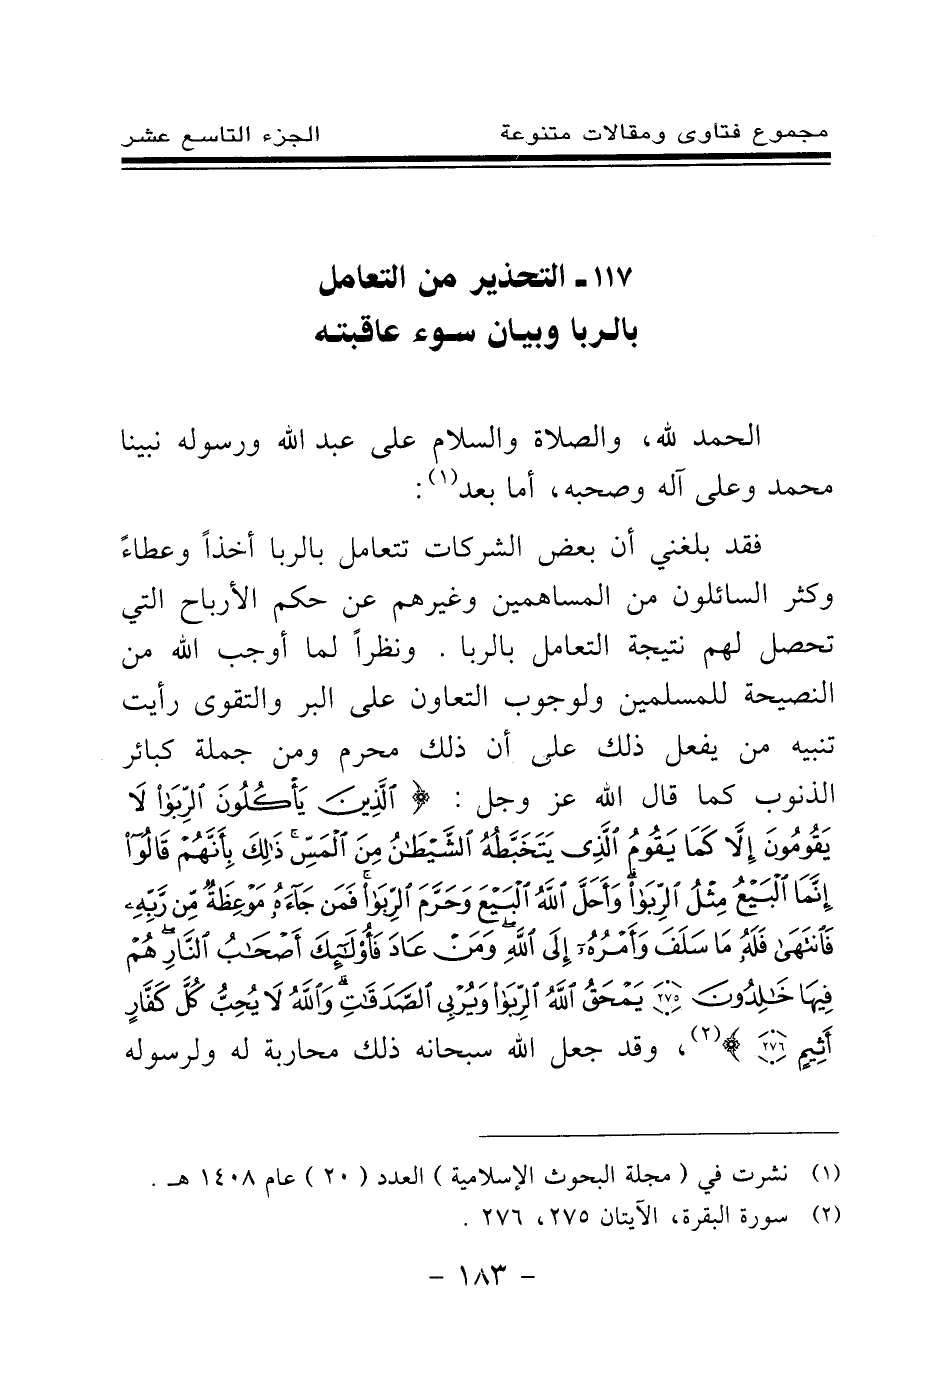 مجموع فتاوى ومقالات متنوعة الجزء التاسع عشر
١١٧ ـ التحذير من التعامل
بالربا وبيان سوء عاقبته
الحمد لله، والصلاة والسلام على عبد الله ورسوله نبينا
محمد وعلى آله وصحبه، أما بعد(١):
فقد بلغني أن بعض الشركات تتعامل بالربا أخذاً وعطاءً
وكثر السائلون من المساهمين وغيرهم عن حكم الأرباح التي
تحصل لهم نتيجة التعامل بالربا . ونظراً لما أوجب الله من
النصيحة للمسلمين ولوجوب التعاون على البر والتقوى رأيت
تنبيه من يفعل ذلك على أن ذلك محرم ومن جملة كبائر
الذنوب كما قال الله عز وجل : ﴿ ٱلَّذِينَ يَأْكُلُونَ ٱلرِّبَوٰا۟ لَا
يَقُومُونَ إِلَّا كَمَا يَقُومُ ٱلَّذِى يَتَخَبَّطُهُ ٱلشَّيْطَـٰنُ مِنَ ٱلْمَسِّ ۚ ذَٰلِكَ بِأَنَّهُمْ قَالُوٓا۟
إِنَّمَا ٱلْبَيْعُ مِثْلُ ٱلرِّبَوٰا۟ ۗ وَأَحَلَّ ٱللَّهُ ٱلْبَيْعَ وَحَرَّمَ ٱلرِّبَوٰا۟ ۚ فَمَن جَآءَهُۥ مَوْعِظَةٌ مِّن رَّبِّهِۦ
فَٱنتَهَىٰ فَلَهُۥ مَا سَلَفَ وَأَمْرُهُۥٓ إِلَى ٱللَّهِ ۖ وَمَنْ عَادَ فَأُو۟لَـٰٓئِكَ أَصْحَـٰبُ ٱلنَّارِ ۖ هُمْ
فِيهَا خَـٰلِدُونَ ٢٧٥ يَمْحَقُ ٱللَّهُ ٱلرِّبَوٰا۟ وَيُرْبِى ٱلصَّدَقَـٰتِ ۗ وَٱللَّهُ لَا يُحِبُّ كُلَّ كَفَّارٍ
أَثِيمٍ ٢٧٦ ﴾(٢)، وقد جعل الله سبحانه ذلك محاربة له ولرسوله
(١) نشرت في ( مجلة البحوث الإسلامية ) العدد ( ٢٠ ) عام ١٤٠٨ هـ .
(٢) سورة البقرة، الآيتان ٢٧٥، ٢٧٦ .
- ١٨٣ -